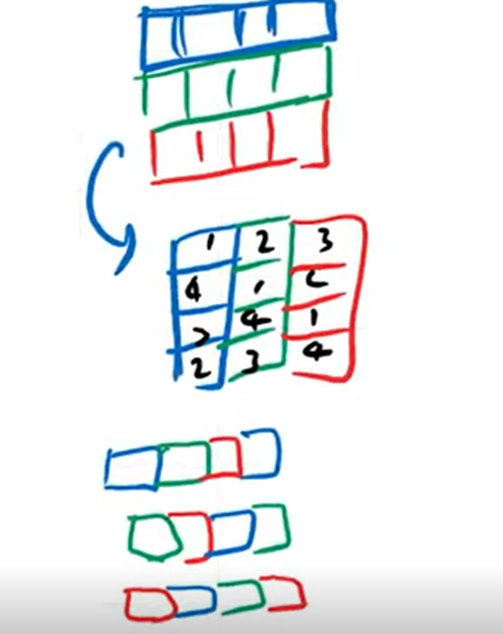 1 2 3
4 1
4 1
2 3 4